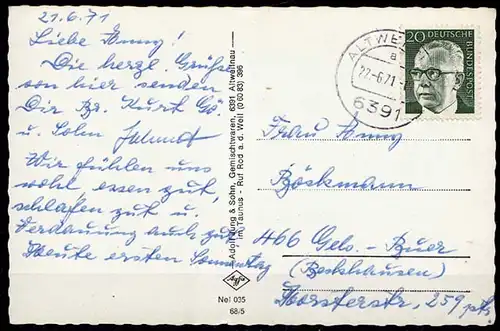 21.6.71
Liebe Änny!
Die herzl. Grüße
von hier senden
Dir Br. Kurt
u. Sohn Helmut
Wir fühlen uns
wohl, essen gut,
schlafen gut u.
Verdauung auch gut
Heute ersten Sonnentag
Adolf Jung & Sohn, Gemischtwaren, 6391 Altweilnau
im Taunus - Ruf Rod a. d. Weil (0 60 83) 396
Agfa
Nel 035
68/5
ALTWEILNAU
a
22.-6.71
6391
20 DEUTSCHE
BUNDESPOST
Frau Änny
Böskmann
466 Gels.-Buer
(Beckhausen)
Horsterstr. 259 ptr.